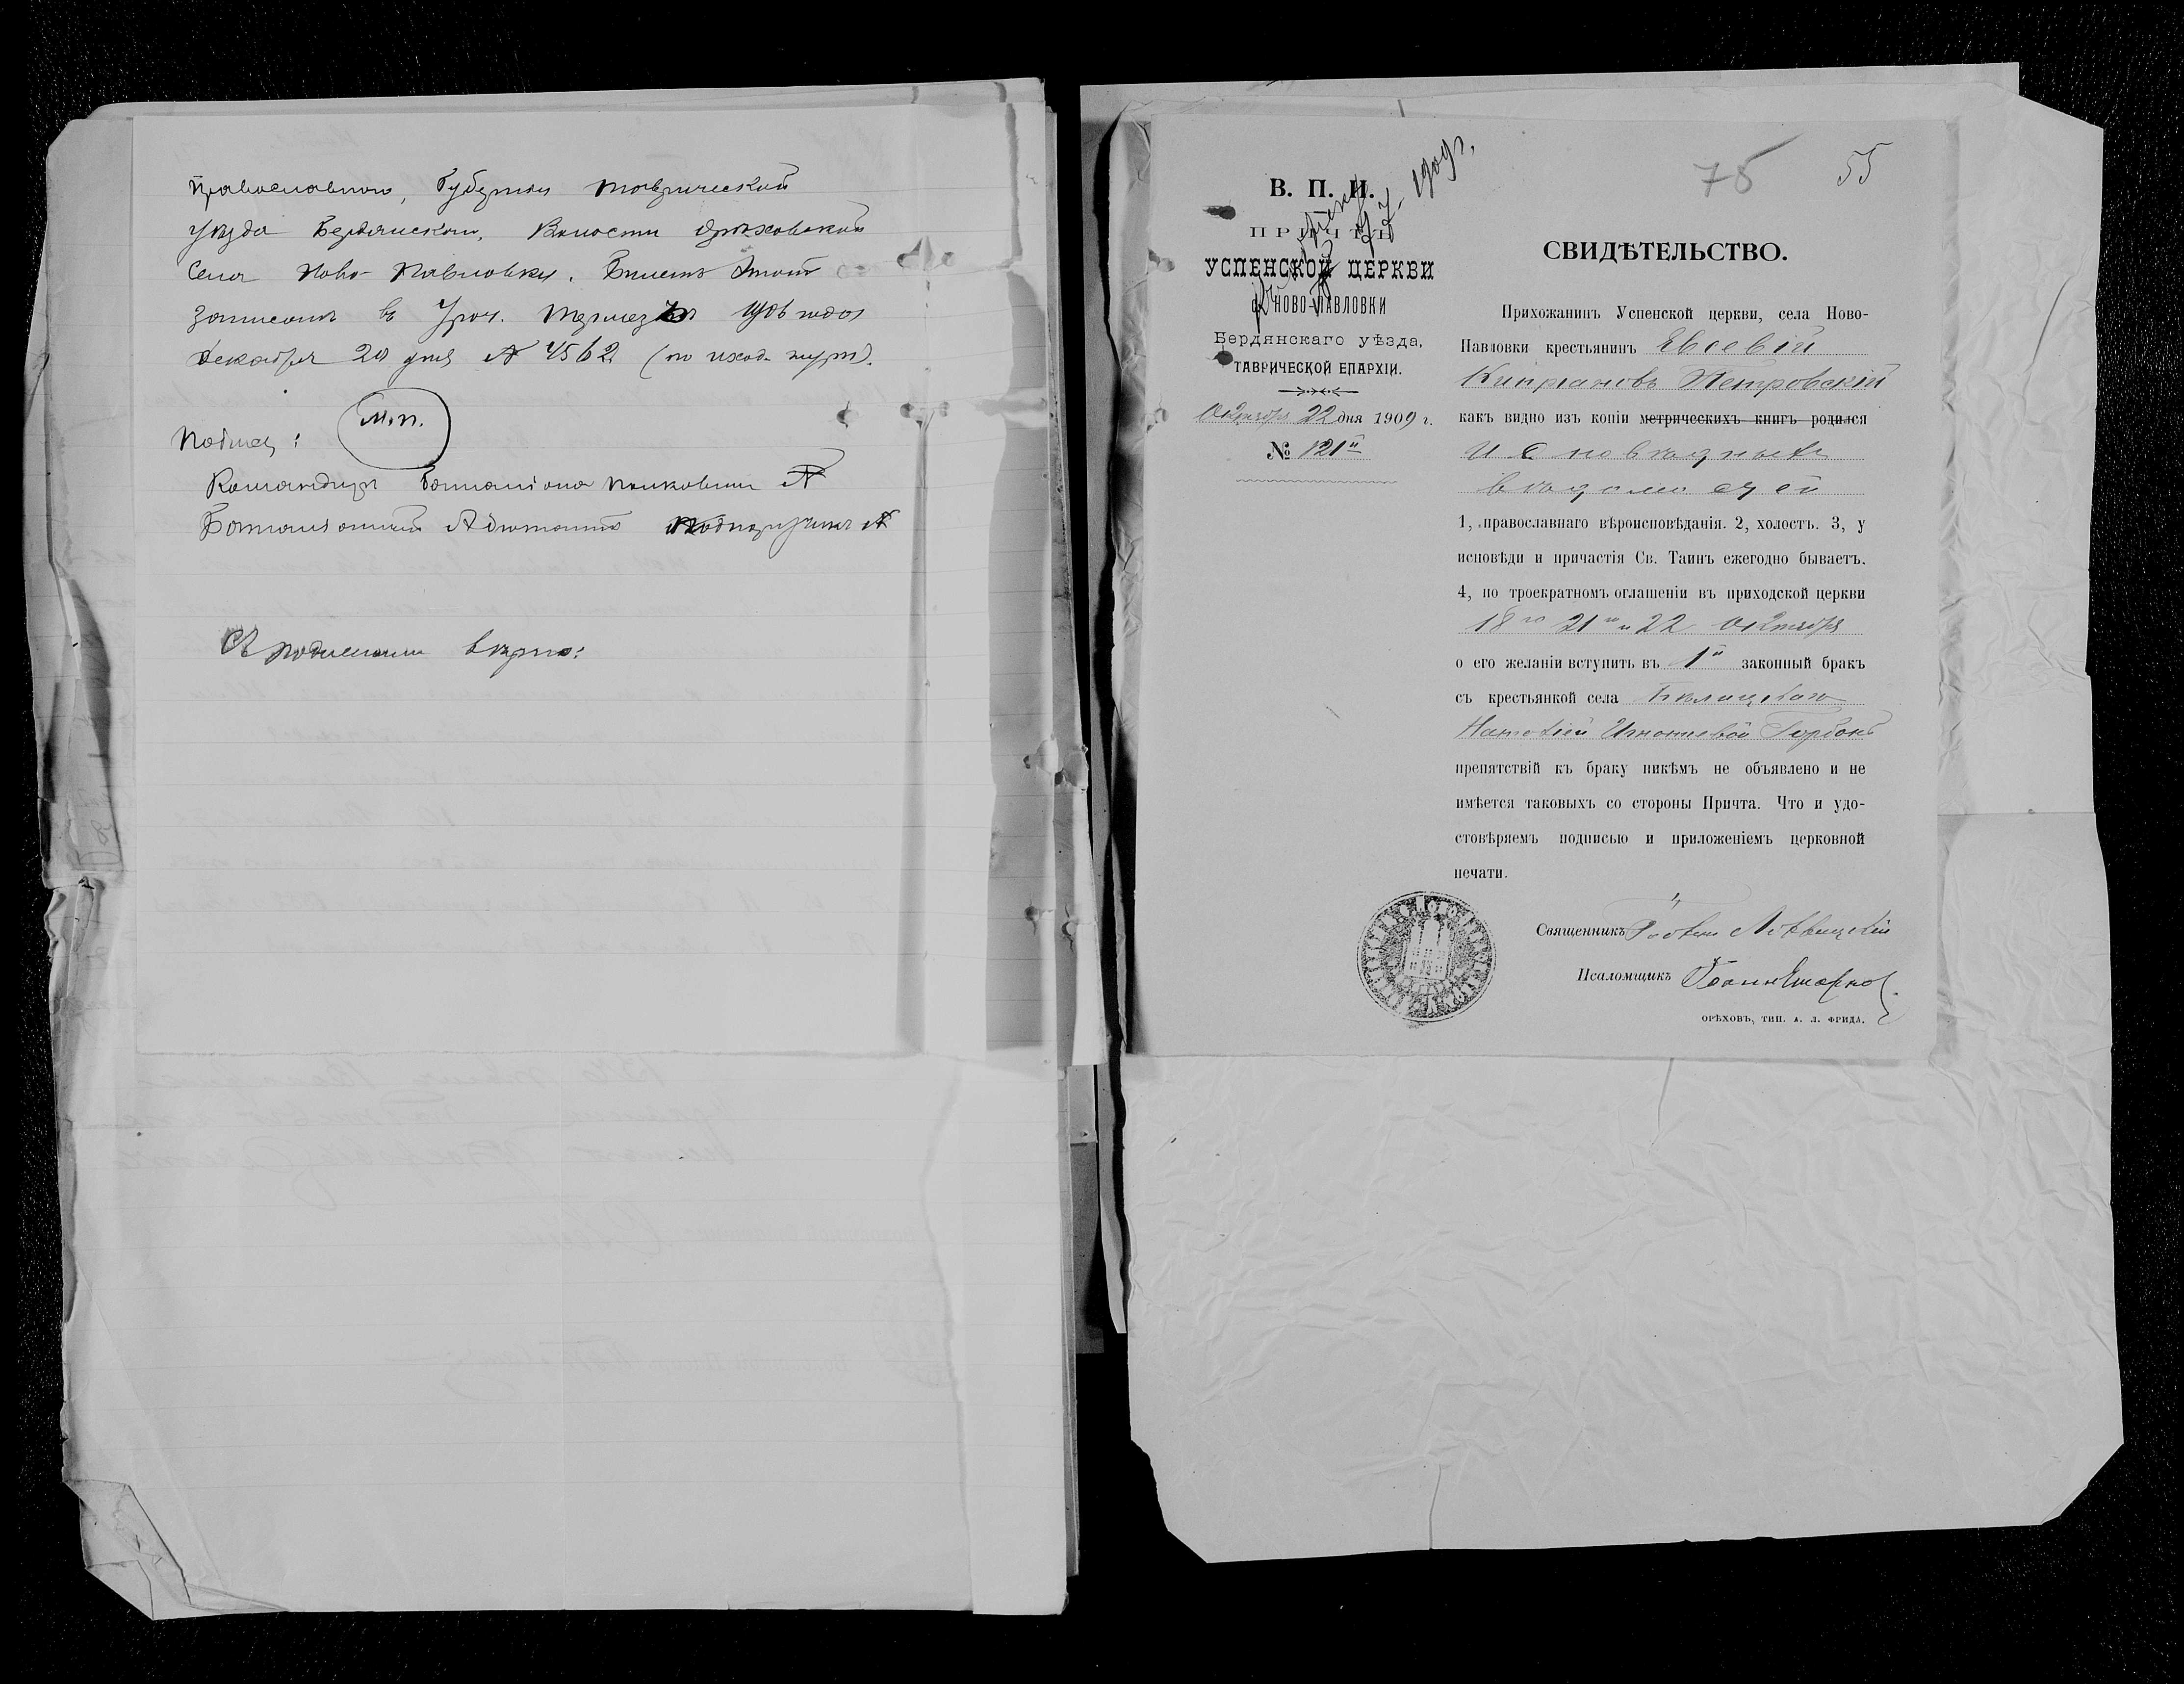 Православнаго, Губернии Таврической
уѣзда Бердянскаго, Волости Орѣховской
Села Ново-Павловки. Билетъ этотъ
записанъ въ Уроч. Термезъ 1906 года
Декабря 20 дня № 4562 (по исход. журн).
М.п.
Подпис:
Командиръ Баталіона Полковникъ N
Баталіонный Адъютантъ Подпоручикъ N
Съ подлиннымъ вѣрно:
75 55
В. П. И.
ПРИЧТЪ
УСПЕНСКОЙ ЦЕРКВИ
с. НОВО-ПАВЛОВКИ
Бердянскаго уѣзда,
ТАВРИЧЕСКОЙ ЕПАРХІИ.
Октября 22 дня 1909 г.
№ 121
1909 г.
СВИДѢТЕЛЬСТВО.
Прихожанинъ Успенской церкви, села Ново-
Павловки крестьянинъ Евсевій
Кипріановъ Петровскій
какъ видно изъ копіи метрическихъ книгъ родился
Исповѣдныхъ
вѣдомостей
1, православнаго вѣроисповѣданія. 2, холостъ. 3, у
исповѣди и причастія Св. Таинъ ежегодно бываетъ.
4, по троекратномъ оглашеніи въ приходской церкви
18го 21го и 22 Октября
о его желаніи вступить въ 1й законный бракъ
съ крестьянкой села
Наталіей Игнатіевой Горбань
препятствій къ браку никѣмъ не объявлено и не
имѣется таковыхъ со стороны Причта. Что и удо-
стовѣряемъ подписью и приложеніемъ церковной
печати.
Священникъ
Псаломщикъ Іоаннъ
ОРѢХОВЪ, ТИП. А. Л. ФРИДА.